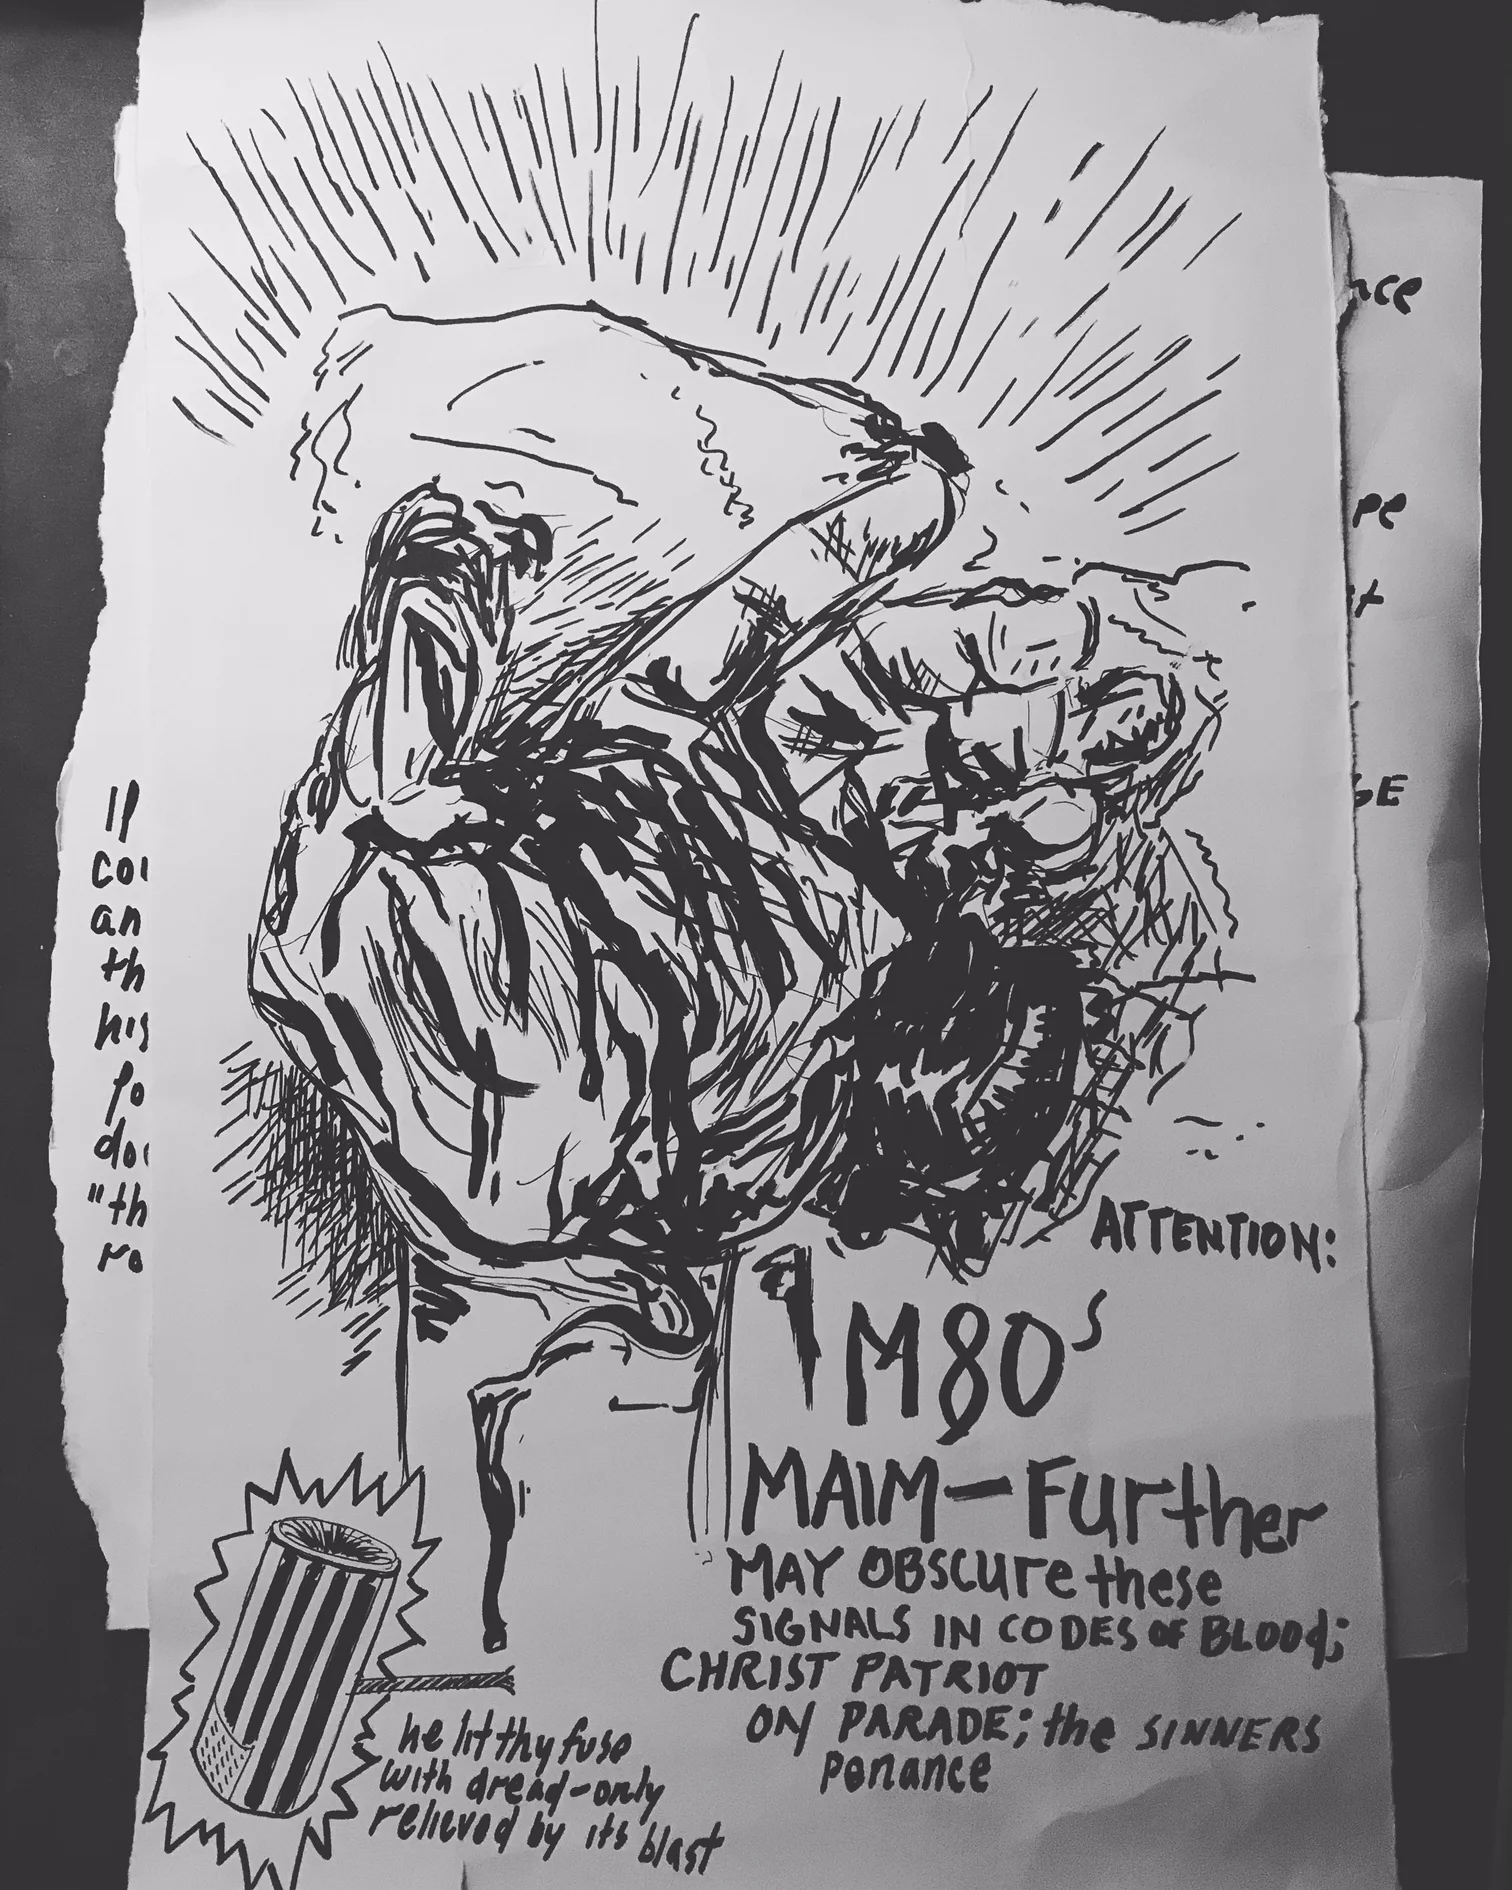 nce
pe
GE
IP
COI
an
th
his
po
doi
"th
ro
ATTENTION:
M80s
MAIM-Further
MAY OBSCURE these
SIGNALS IN CODES OF BLOOd;
CHRIST PATRIOT
ON PARADE; the SINNERS
Penance
he lit thy fuse
with dread-only
relieved by its blast